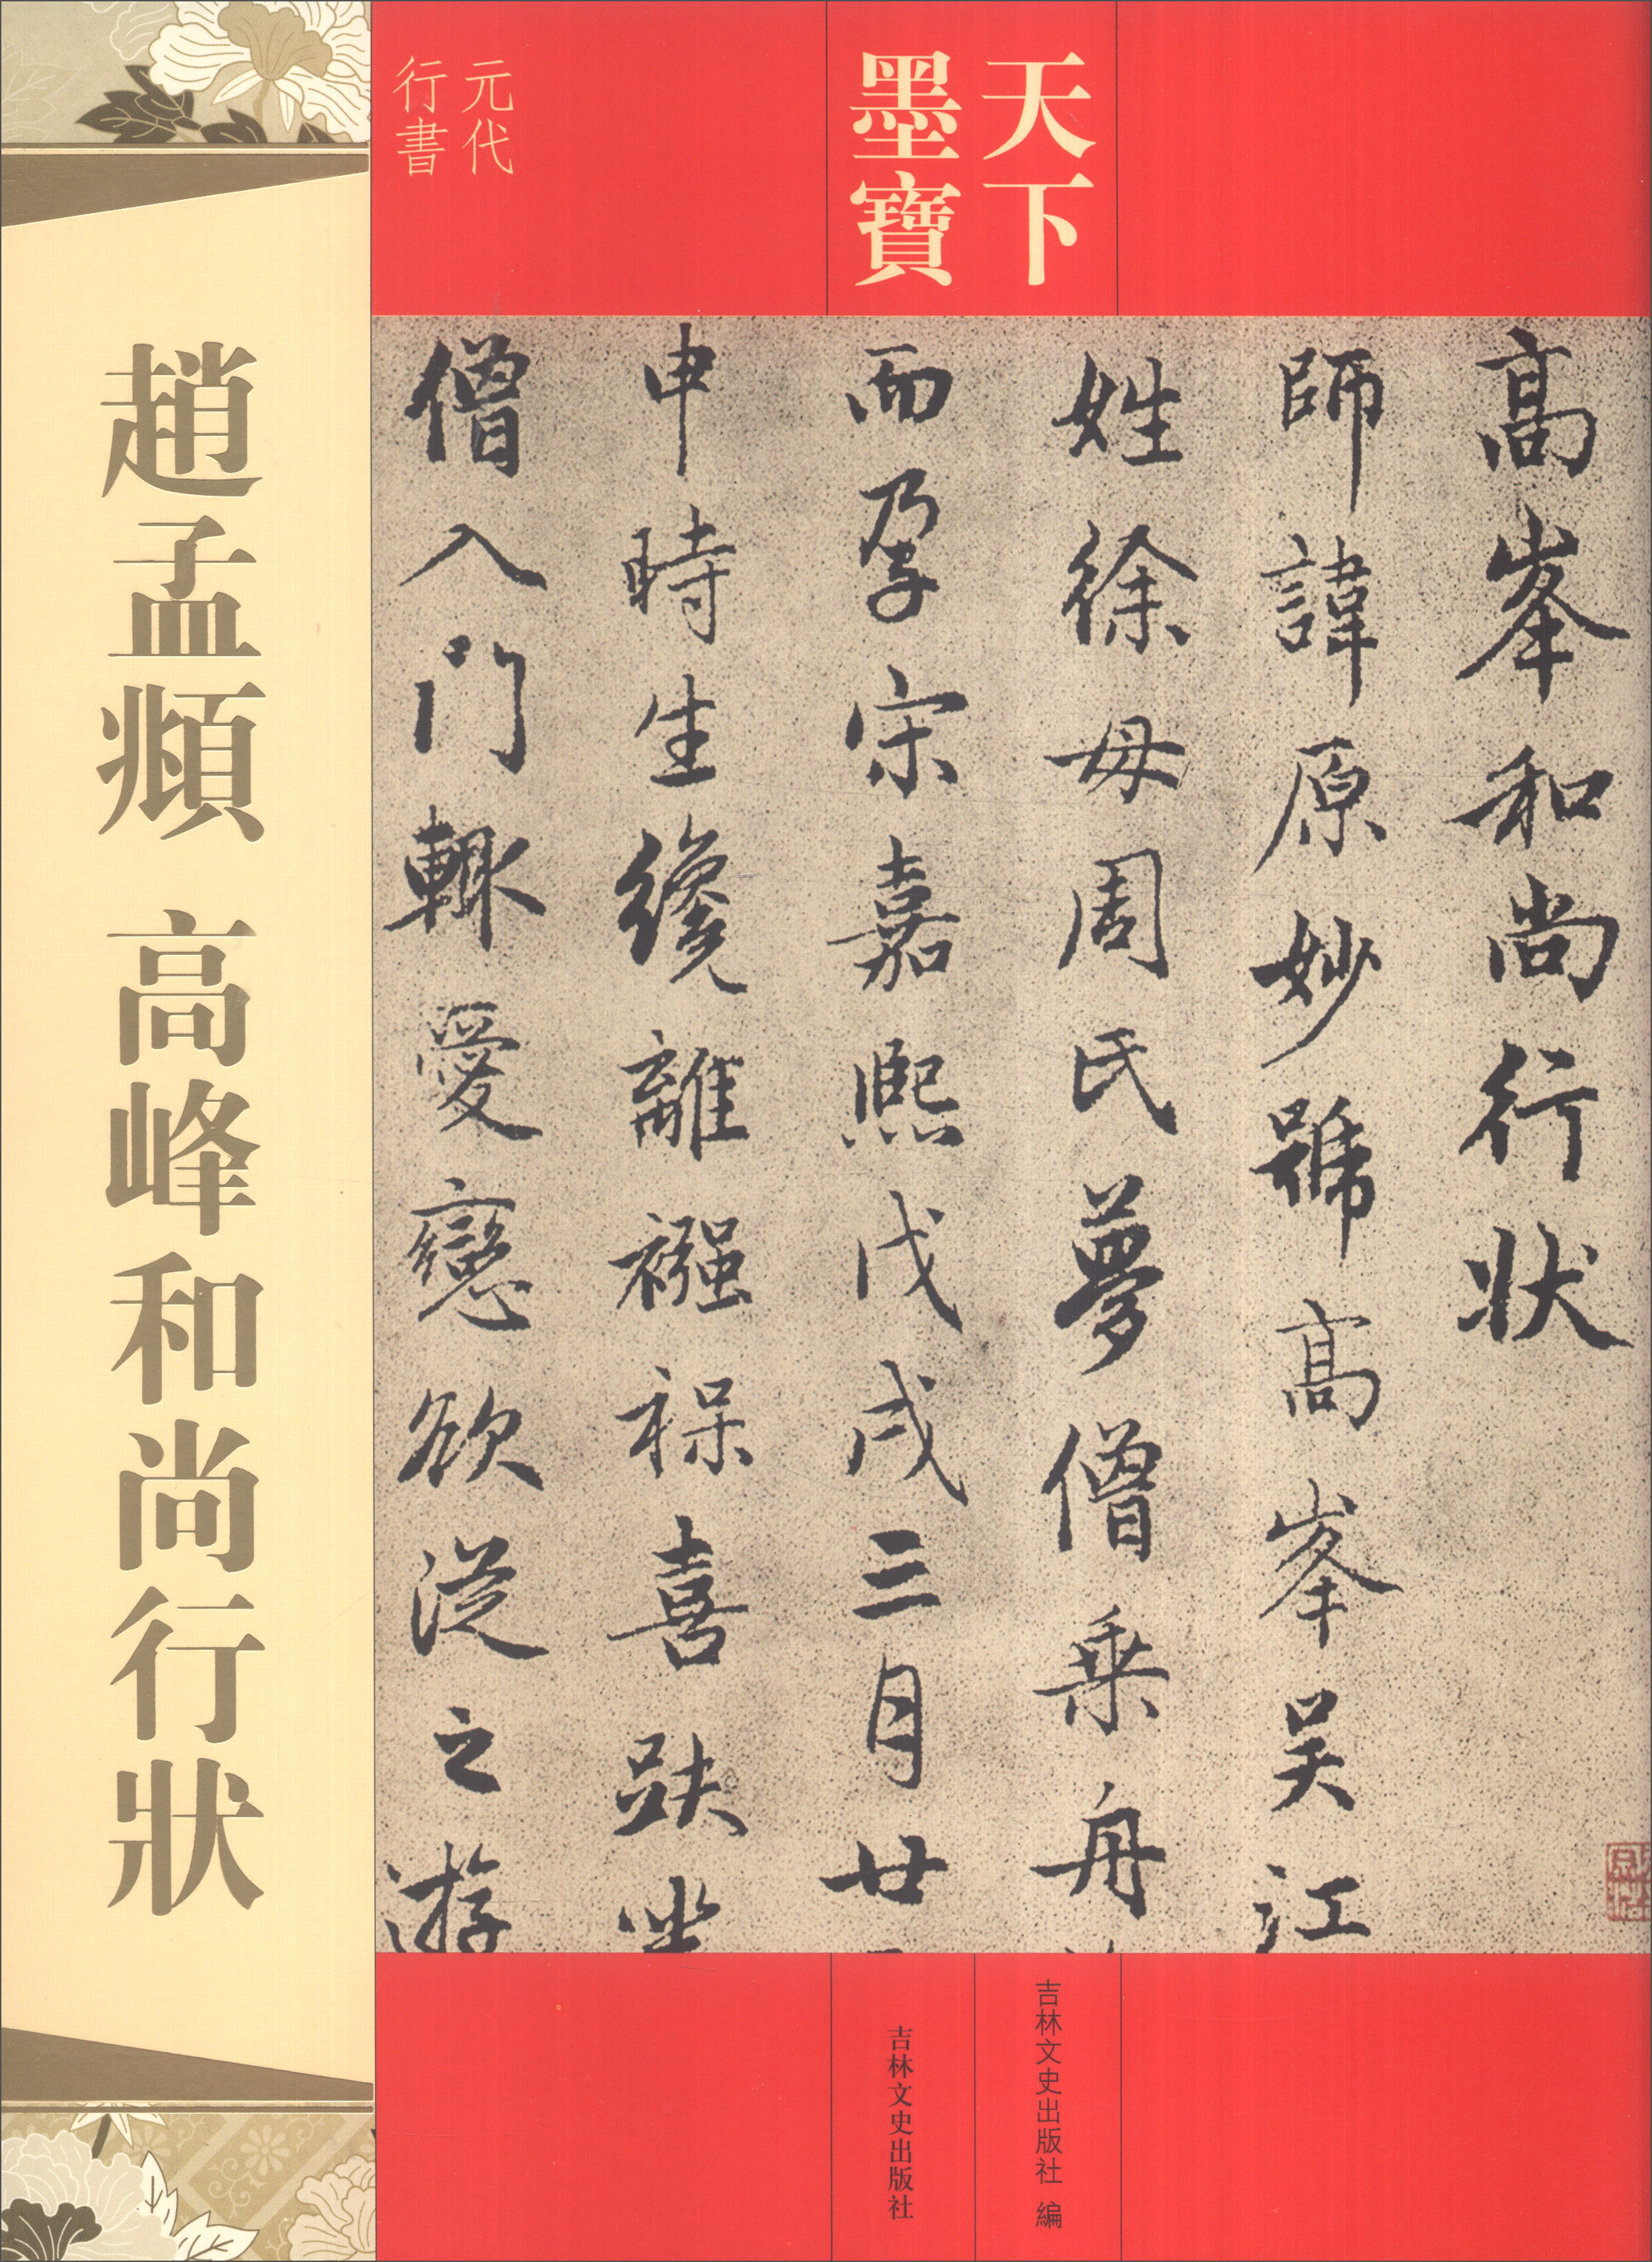 天下
墨寶
元代
行書
高峯和尚行狀
師諱原妙號高峯吴江
姓徐母周氏夢僧乗舟
而孕宋嘉熙戊戌三月廿
申時生纔離襁褓喜趺坐
僧入門輙愛戀欲從之遊
趙孟頫 高峰和尚行狀
吉林文史出版社 編
吉林文史出版社